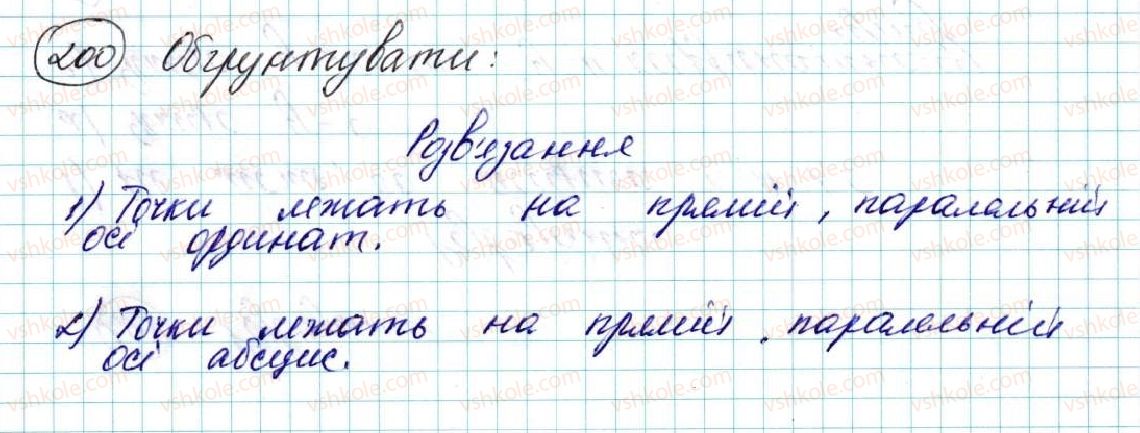 200 Обгрунтувати:
Розв'язання
1) Точки лежать на прямій, паралельній
осі ординат.
2) Точки лежать на прямій, паралельній
осі абсцис.
vshkole.com